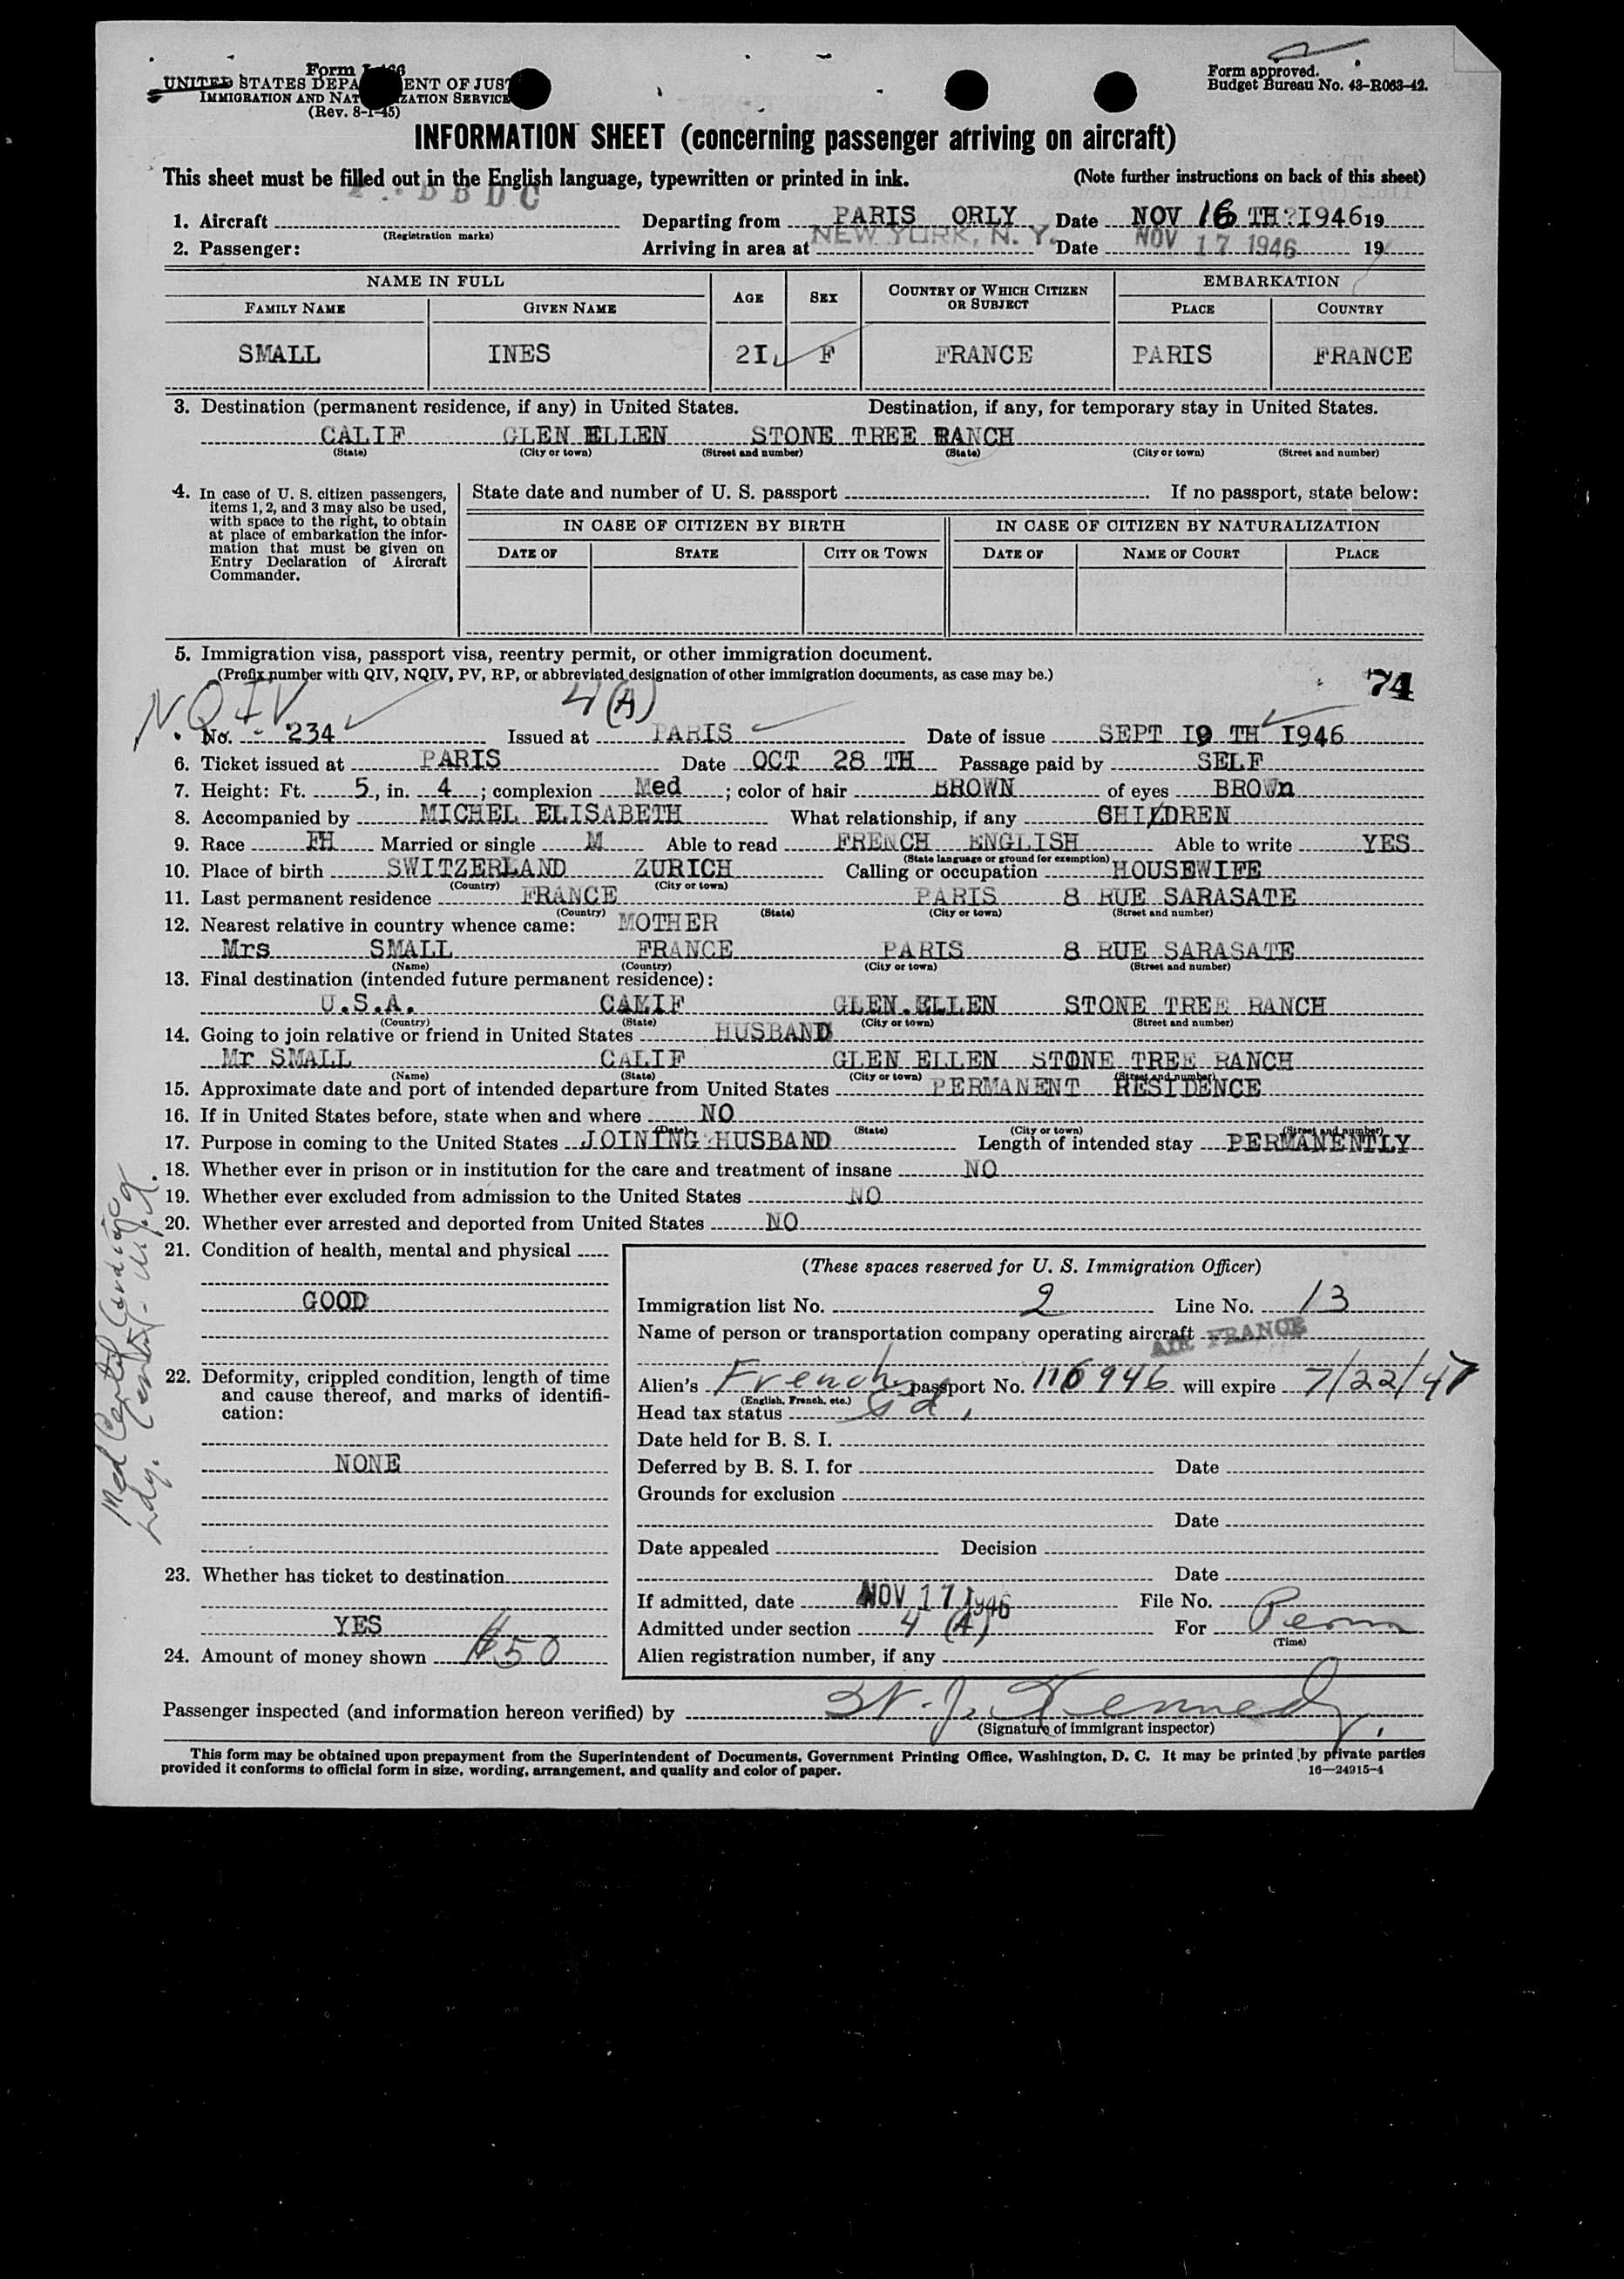 Form I-466
UNITED STATES DEPARTMENT OF JUSTICE
IMMIGRATION AND NATURALIZATION SERVICE
(Rev. 8-1-45)
Form approved.
Budget Bureau No. 43-R063-42.
INFORMATION SHEET (concerning passenger arriving on aircraft)
This sheet must be filled out in the English language, typewritten or printed in ink. (Note further instructions on back of this sheet)
1. Aircraft F. BBDC Departing from PARIS ORLY Date NOV 16 TH ?I946 19
(Registration marks)
2. Passenger: Arriving in area at NEW YORK, N. Y. Date NOV 17 1946 19
NAME IN FULL AGE SEX COUNTRY OF WHICH CITIZEN OR SUBJECT EMBARKATION
FAMILY NAME GIVEN NAME PLACE COUNTRY
SMALL INES 2I F FRANCE PARIS FRANCE
3. Destination (permanent residence, if any) in United States. Destination, if any, for temporary stay in United States.
CALIF GLEN ELLEN STONE TREE RANCH
(State) (City or town) (Street and number) (State) (City or town) (Street and number)
4. In case of U. S. citizen passengers, items 1, 2, and 3 may also be used, with space to the right, to obtain at place of embarkation the information that must be given on Entry Declaration of Aircraft Commander.
State date and number of U. S. passport If no passport, state below:
IN CASE OF CITIZEN BY BIRTH IN CASE OF CITIZEN BY NATURALIZATION
DATE OF STATE CITY OR TOWN DATE OF NAME OF COURT PLACE
5. Immigration visa, passport visa, reentry permit, or other immigration document.
(Prefix number with QIV, NQIV, PV, RP, or abbreviated designation of other immigration documents, as case may be.)
74
NQIV 4(A)
No. - 234 Issued at PARIS Date of issue SEPT I9 TH I946
6. Ticket issued at PARIS Date OCT 28 TH Passage paid by SELF
7. Height: Ft. 5, in. 4; complexion Med; color of hair BROWN of eyes BROWn
8. Accompanied by MICHEL ELISABETH What relationship, if any CHILDREN
9. Race FH Married or single M Able to read FRENCH ENGLISH Able to write YES
(State language or ground for exemption)
10. Place of birth SWITZERLAND ZURICH Calling or occupation HOUSEWIFE
(Country) (City or town)
11. Last permanent residence FRANCE PARIS 8 RUE SARASATE
(Country) (State) (City or town) (Street and number)
12. Nearest relative in country whence came: MOTHER
Mrs SMALL FRANCE PARIS 8 RUE SARASATE
(Name) (Country) (City or town) (Street and number)
13. Final destination (intended future permanent residence):
U.S.A. CALIF GLEN.ELLEN STONE TREE RANCH
(Country) (State) (City or town) (Street and number)
14. Going to join relative or friend in United States HUSBAND
Mr SMALL CALIF GLEN ELLEN STONE TREE RANCH
(Name) (State) (City or town) (Street and number)
15. Approximate date and port of intended departure from United States PERMANENT RESIDENCE
16. If in United States before, state when and where NO
(Date) (State) (City or town) (Street and number)
17. Purpose in coming to the United States JOINING HUSBAND Length of intended stay PERMANENTLY
18. Whether ever in prison or in institution for the care and treatment of insane NO
19. Whether ever excluded from admission to the United States NO
20. Whether ever arrested and deported from United States NO
21. Condition of health, mental and physical
GOOD
22. Deformity, crippled condition, length of time and cause thereof, and marks of identification:
NONE
23. Whether has ticket to destination
YES
24. Amount of money shown $50
(These spaces reserved for U. S. Immigration Officer)
Immigration list No. 2 Line No. 13
Name of person or transportation company operating aircraft AIR FRANCE
Alien's French passport No. 116946 will expire 7/22/47
(English, French, etc.)
Head tax status
Date held for B. S. I.
Deferred by B. S. I. for Date
Grounds for exclusion
Date
Date appealed Decision
Date
If admitted, date NOV 17 1946 File No.
Admitted under section 4 (A) For Perm
(Time)
Alien registration number, if any
Passenger inspected (and information hereon verified) by W. J. Kennedy
(Signature of immigrant inspector)
This form may be obtained upon prepayment from the Superintendent of Documents, Government Printing Office, Washington, D. C. It may be printed by private parties
provided it conforms to official form in size, wording, arrangement, and quality and color of paper. 16—24915-4